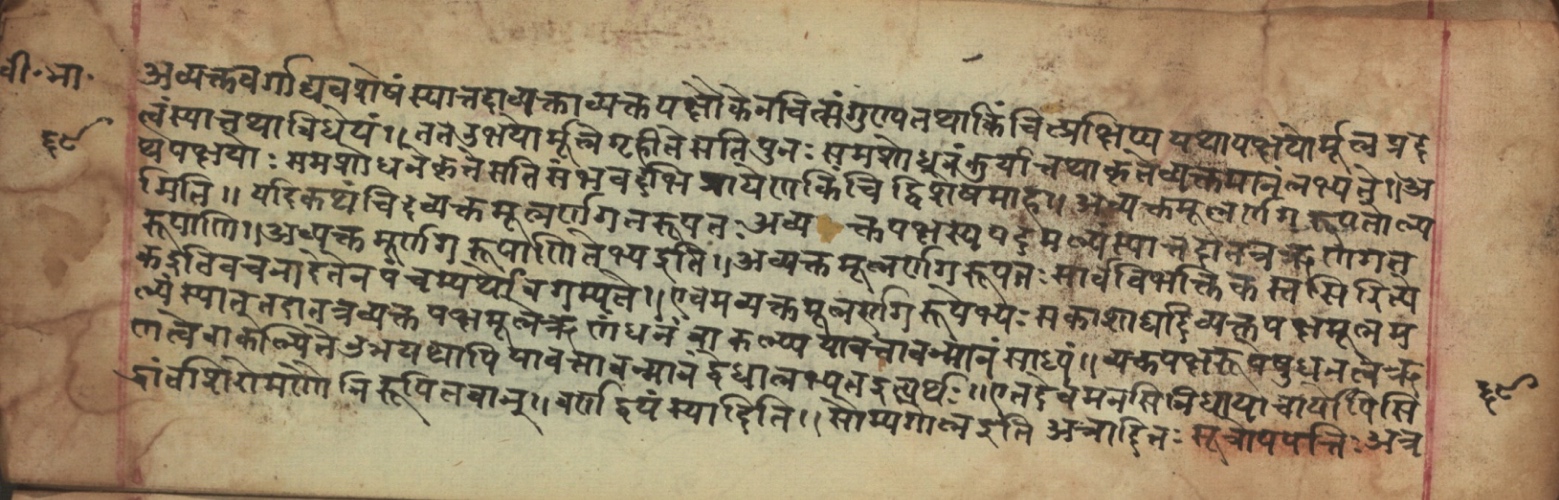 वी.भा.
अव्यक्तवर्गाद्यवशेषं स्यात्तदाव्यक्ताव्यक्तपक्षौ केनचित्संगुण्य तथा किंचित्प्रक्षिप्य यथा पक्षयोर्मूलप्रद
त्वं स्यात्तथा विधेयं।। तत उभयोर्मूले गृहीते सति पुनः समशोधनं कुर्यात्तथा कृते व्यक्तमानं लभ्यते।। अ
थ पक्षयोः समशोधने कृते सति संभवदभिप्रायेण किंचिद्विशेषमाह।। अव्यक्तमूलर्णगरूपतोल्प
मिति।। यदि कथंचिदव्यक्तमूलर्णगतरूपतः अव्यक्तपक्षस्य पदमल्पं स्यात्तदा तत्र ऋणगत
रूपाणि।। अव्यक्तमूर्णगरूपाणि तेभ्य इति।। अव्यक्तमूलर्णगरूपतः सार्वविभक्तिकस्तसिरित्य
क इति वचनादेतेन पंचम्यर्थोवगम्यते।। एवमव्यक्तमूलर्णगरूपेभ्यः सकाशाद्यदि व्यक्तपक्षमूलम
ल्पं स्यात् तदा तत्र व्यक्तपक्षमूले ऋणं धनं वा कल्प्य यावत्तावन्मानं साध्यं।। व्यक्तपक्षरूपेषु धनत्वे ऋ
णत्वे वा कल्पिते उभयथापि यावत्तावन्मानं द्वेधा लभ्यत इत्यर्थः।। एतदेव मनसि निधायाचार्योपि सि
द्धांतशिरोमणौ निरूपितवान्।। वर्णाद्वियं स्यादिति।। साम्यगोल इति अत्रादितः सूत्रोपपत्तिः अत्र
६९
६९